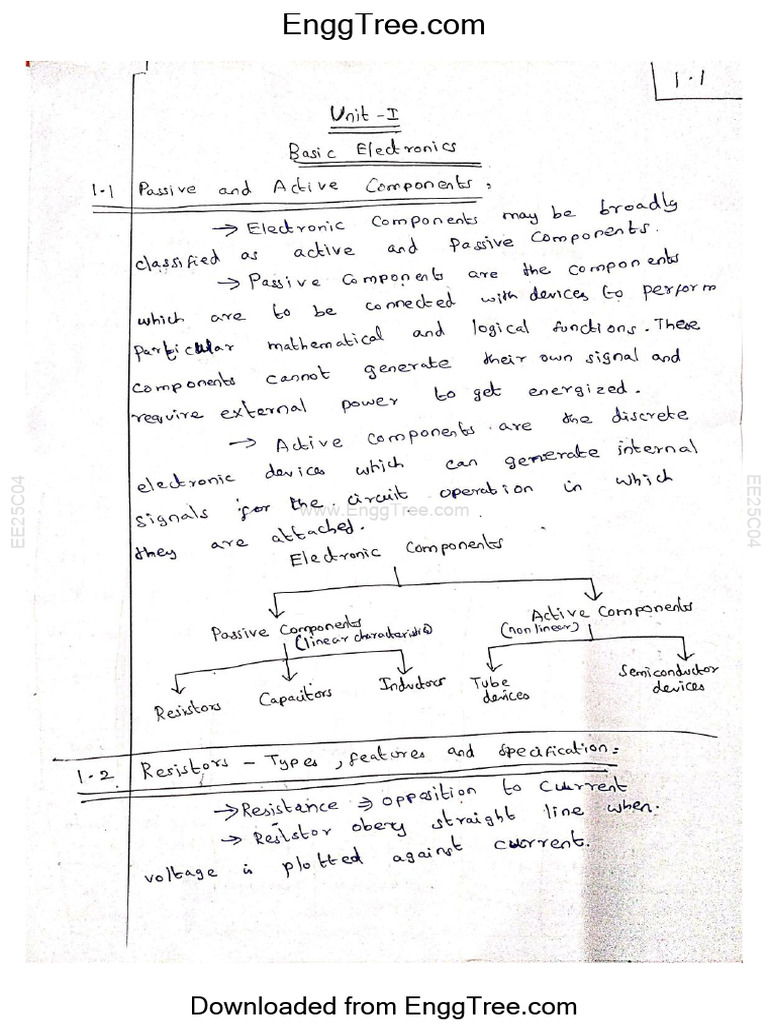 EnggTree.com
1.1
Unit - I
Basic Electronics
1.1 Passive and Active Components,
→ Electronic Components may be broadly
classified as active and passive components.
→ Passive Components are the components
which are to be connected with devices to perform
particular mathematical and logical functions. These
components cannot generate their own signal and
require external power to get energized.
→ Active components are the discrete
electronic devices which can generate internal
signals for the circuit operation in which
www.EnggTree.com
they are attached.
EE25C04
EE25C04
Electronic Components
Passive Components
(linear characteristics)
Active Components
(non linear)
Resistors
Capacitors
Inductors
Tube
devices
Semiconductor
devices
1.2 Resistors - Types, features and specification:
→ Resistance ⇒ opposition to current
→ Resistor obery straight line when.
voltage is plotted against current.
Downloaded from EnggTree.com